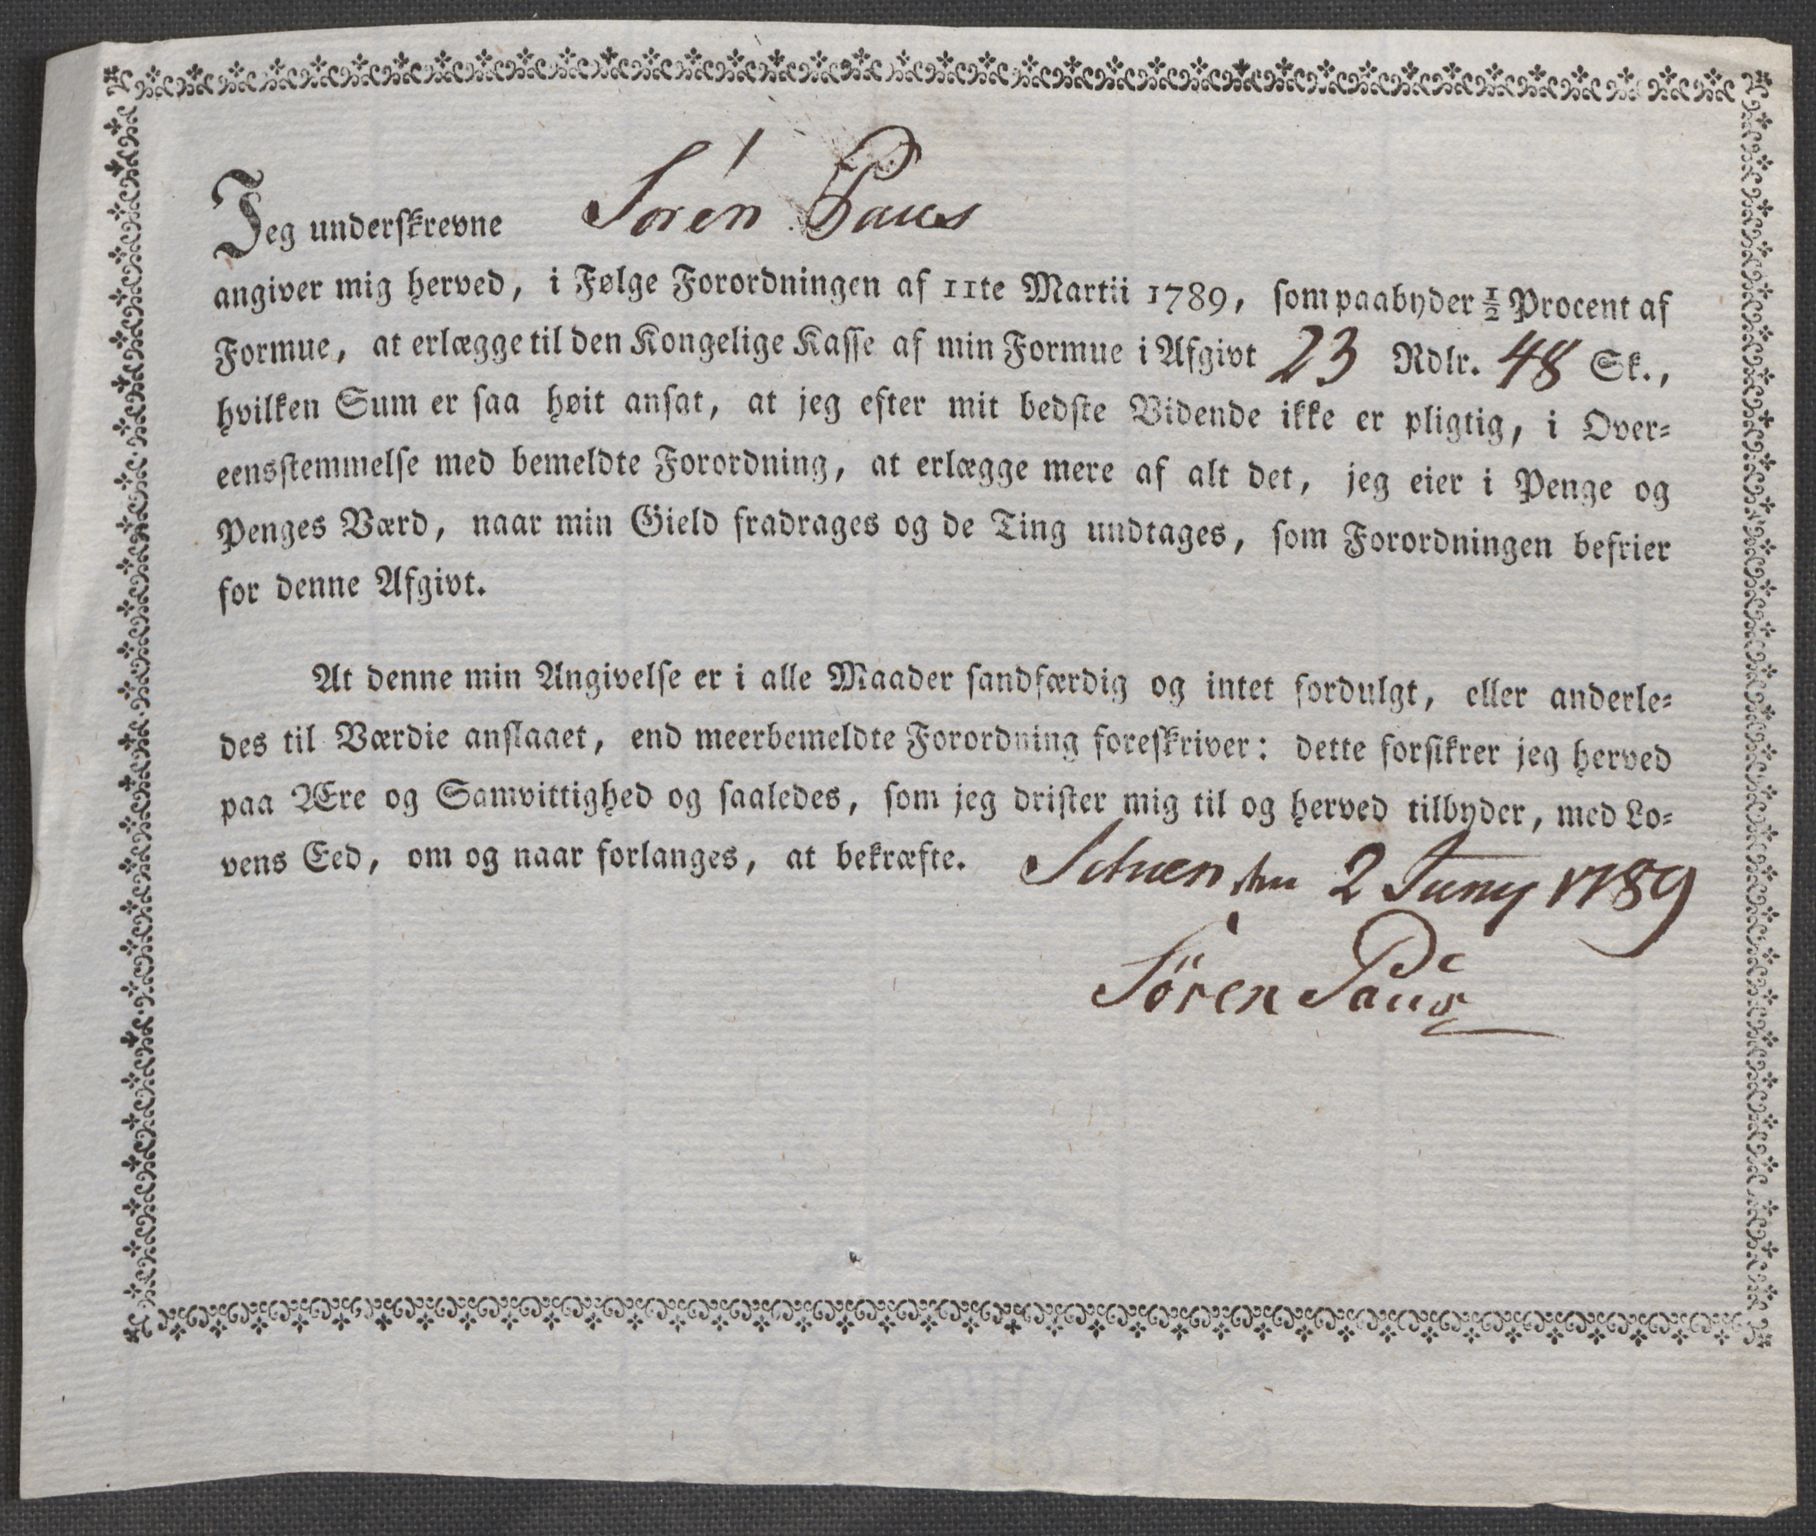 Jeg underskrevne Søren Paus
angiver mig herved, i Følge Forordningen af 11te Martii 1789, som paabyder ½ Procent af
Formue, at erlægge til den Kongelige Kasse af min Formue i Afgivt 23 Rdlr. 48 Sk.,
hvilken Sum er saa høit ansat, at jeg efter mit bedste Vidende ikke er pligtig, i Over-
eensstemmelse med bemeldte Forordning, at erlægge mere af alt det, jeg eier i Penge og
Penges Værd, naar min Gield fradrages og de Ting undtages, som Forordningen befrier
for denne Afgivt.
At denne min Angivelse er i alle Maader sandfærdig og intet fordulgt, eller anderle-
des til Værdie anslaaet, end meerbemeldte Forordning foreskriver: dette forsikrer jeg herved
paa Ære og Samvittighed og saaledes, som jeg drister mig til og herved tilbyder, med Lo-
vens Eed, om og naar forlanges, at bekræfte. Schien den 2 Juny 1789
Sören Paus